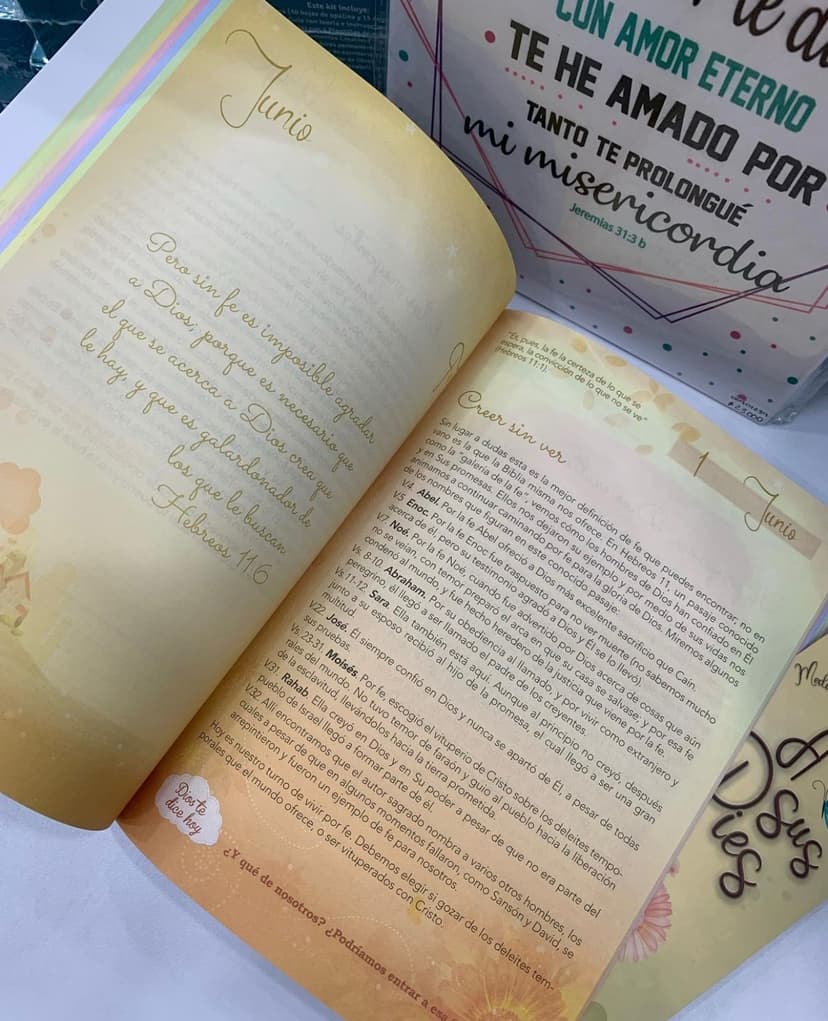 Junio
Pero sin fe es imposible agradar
a Dios; porque es necesario que
el que se acerca a Dios crea que
le hay, y que es galardonador de
los que le buscan.
Hebreos 11:6
"Es, pues, la fe la certeza de lo que se
espera, la convicción de lo que no se ve"
(Hebreos 11:1).
1 Junio
Creer sin ver
Sin lugar a dudas esta es la mejor definición de fe que puedes encontrar; no en
vano es la que la Biblia misma nos ofrece. En Hebreos 11, un pasaje conocido
como la "galería de la fe", vemos cómo los hombres de Dios han confiado en Él
y en Sus promesas. Ellos nos dejaron su ejemplo y por medio de sus vidas nos
animamos a continuar caminando por fe para la gloria de Dios. Miremos algunos
de los nombres que figuran en este conocido pasaje:
V.4 Abel. Por la fe Abel ofreció a Dios más excelente sacrificio que Caín.
V.5 Enoc. Por la fe Enoc fue traspuesto para no ver muerte (no sabemos mucho
acerca de él; pero su testimonio agradó a Dios y Él se lo llevó).
V.7 Noé. Por la fe Noé, cuando fue advertido por Dios acerca de cosas que aún
no se veían, con temor preparó el arca en que su casa se salvase; y por esa fe
condenó al mundo, y fue hecho heredero de la justicia que viene por la fe.
Vs. 8-10 Abraham. Por su obediencia al llamado, y por vivir como extranjero y
peregrino, él llegó a ser llamado el padre de los creyentes.
Vs. 11-12 Sara. Ella también está aquí. Aunque al principio no creyó, después
junto a su esposo recibió al hijo de la promesa, el cual llegó a ser una gran
multitud.
V.22 José. Él siempre confió en Dios y nunca se apartó de Él, a pesar de todas
sus pruebas.
Vs. 23-31 Moisés. Por fe, escogió el vituperio de Cristo sobre los deleites tempo-
rales del mundo. No tuvo temor de faraón y guio al pueblo hacia la liberación
de la esclavitud, llevándolos hacia la tierra prometida.
V.31 Rahab. Ella creyó en Dios y en Su poder a pesar de que no era parte del
pueblo de Israel llegó a formar parte de él.
V.32 Allí encontramos que el autor sagrado nombra a varios otros hombres, los
cuales a pesar de que en algunos momentos fallaron, como Sansón y David, se
arrepintieron y fueron un ejemplo de fe para nosotros.
Hoy es nuestro turno de vivir por fe. Debemos elegir si gozar de los deleites tem-
porales que el mundo ofrece, o ser vituperados con Cristo.
Dios te
dice hoy
¿Y qué de nosotros? ¿Podríamos entrar a esa
CON AMOR ETERNO
TE HE AMADO POR
TANTO TE PROLONGUÉ
mi misericordia
Jeremías 31:3 b
$23.000
Este kit incluye:
A
Sus
Pies